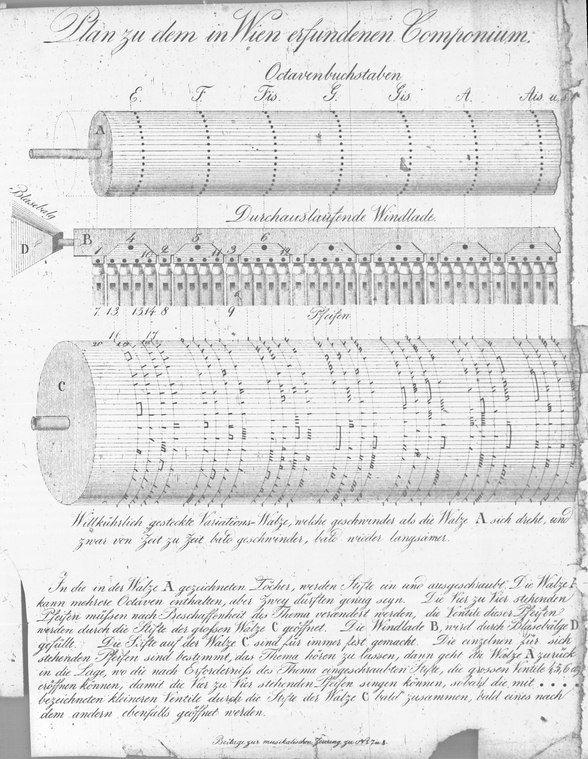 Plan zu dem in Wien erfundenen Componium.
Octavenbuchstaben
E. F. Fis. G. Gis. A. Ais. u.s.
A
Durchauslaufende Windlade.
Blasebalg
D
B
4 5 6
1 10 2 11 3 12
7. 13. 15 14 8 9
Pfeifen
16 17
20
C
Willkührlich gesteckte Variations-Walze, welche geschwinder als die Walze A sich dreht, und
zwar von Zeit zu Zeit bald geschwinder, bald wieder langsamer.
In die in der Walze A gezeichneten Löcher, werden Stifte ein und ausgeschraubt. Die Walze
kann mehrere Octaven enthalten, aber zwey dürften genug seyn. Die Vier zu Vier stehenden
Pfeifen müssen nach Beschaffenheit des Thema verändert werden, die Ventile dieser Pfeifen
werden durch die Stifte der großen Walze C geöffnet. Die Windlade B wird durch Blasebälge D
gefüllt. Die Stifte auf der Walze C sind für immer fest gemacht. Die einzelnen für sich
stehenden Pfeifen sind bestimmt, das Thema hören zu lassen, dann geht die Walze A zurück
in die Lage, wo die nach Erforderniß des Thema eingeschraubten Stifte, die grossen Ventile
eröffnen können, damit die Vier zu Vier stehenden Pfeifen singen können, sobald die mit . . . .
bezeichneten kleineren Ventile durch die Stifte der Walze C bald zusammen, bald eines nach
dem andern ebenfalls geöffnet werden.
Beilage zur musikalischen Zeitung zu No 7 u 8.